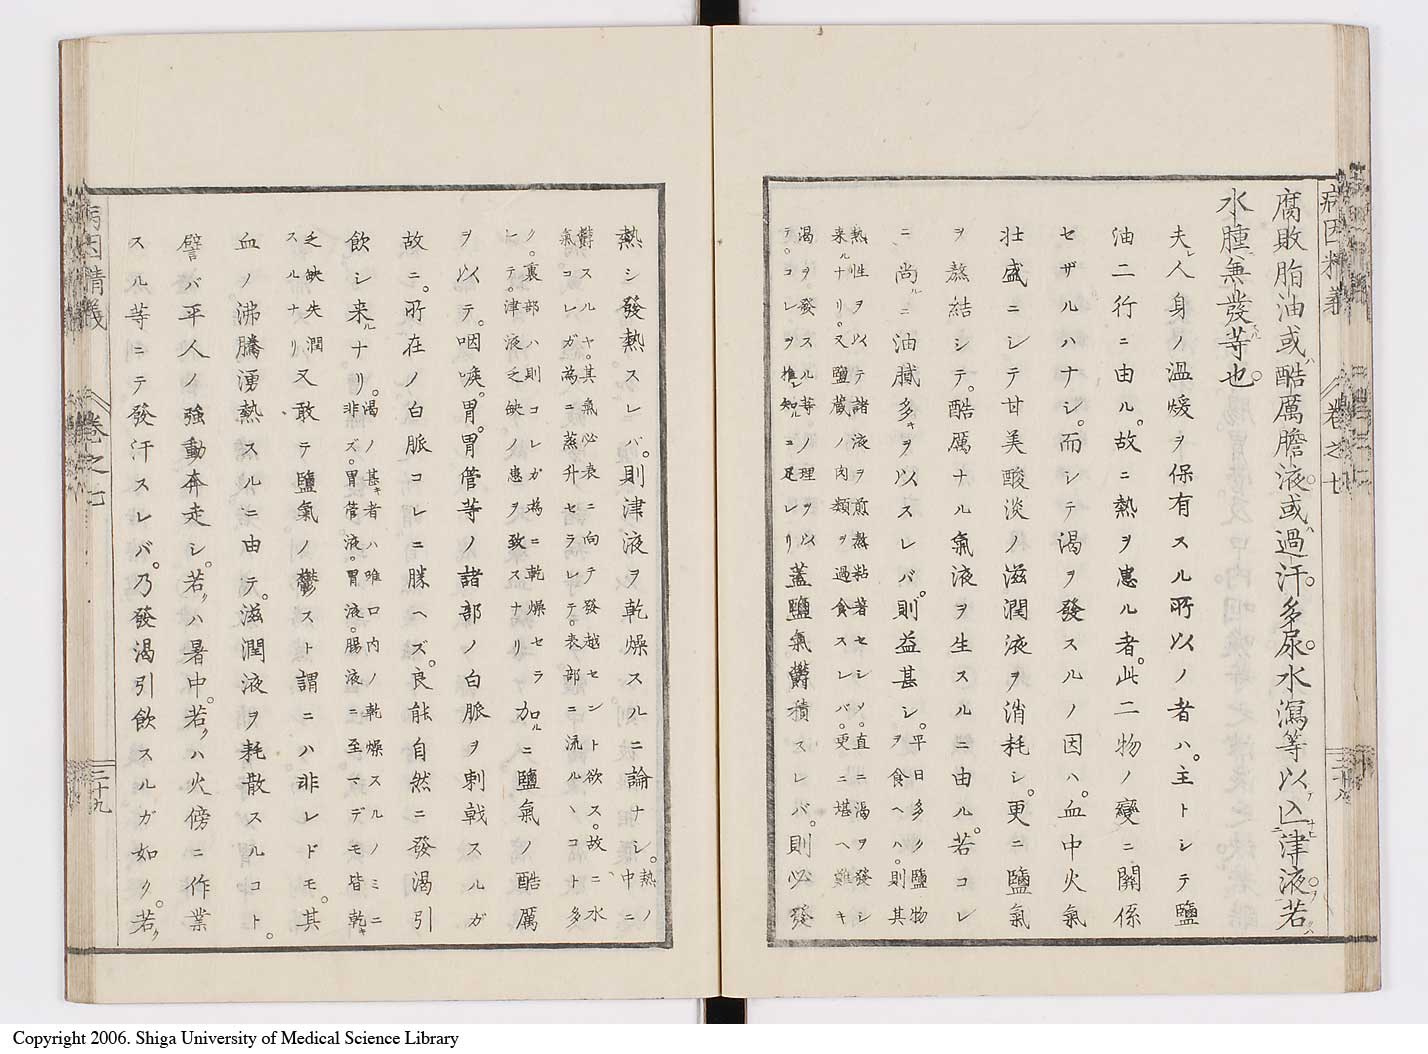 病因精義 卷之七 三十八
腐敗脂油或ハ酷厲膽液。或ハ過汗。多尿。水瀉等以亡津液。若ハ
水腫兼發等也。
夫レ人身ノ溫煖ヲ保有スル所以ノ者ハ。主トシテ鹽
油二行ニ由ル。故ニ熱ヲ患ル者。此二物ノ變ニ關係
セザルハナシ。而シテ渴ヲ發スルノ因ハ。血中火氣
壯盛ニシテ甘美酸淡ノ滋潤液ヲ消耗シ。更ニ鹽氣
ヲ熬結シテ。酷厲ナル氣液ヲ生スルニ由ル。若コレ
ニ尚ルニ油膩多キヲ以スレバ。則益甚シ。平日多ク鹽物
ヲ食ヘハ。則其
熱性ヲ以テ諸液ヲ煎熬粘著セシメ。直ニ渴ヲ發シ
來ルナリ。又鹽藏ノ肉類ヲ過食スレバ。更ニ堪ヘ難キ
渴ヲ發スル等ノ理ヲ以
テ。コレヲ推シ知ルニ足レリ
蓋鹽氣欝積スレバ。則必發
熱シ發熱スレバ。則津液ヲ乾燥スルニ論ナシ。熱ノ
中ニ
欝スルヤ。其氣必表ニ向テ發越セント欲ス。故ニ水
氣コレガ為ニ蒸升セラレテ。表部ニ流ルヽコト多
ク。裏部ハ則コレガ為ニ乾燥セラ
レテ。津液乏缺ノ患ヲ致スナリ
加ルニ鹽氣ノ酷厲
ヲ以テ。咽喉。胃。胃管等ノ諸部ノ白脈ヲ刺戟スルガ
故ニ。所在ノ白脈コレニ勝ヘズ。良能自然ニ發渴引
飲シ來ルナリ。渴ノ甚キ者ハ唯口内ノ乾燥スルノミニ
非ズ。胃管液。胃液。腸液ニ至マデモ皆乾キ
乏缺失潤
スルナリ
又敢テ鹽氣ノ鬱スト謂ニハ非レドモ。其
血ノ沸騰湧熱スルニ由テ。滋潤液ヲ耗散スルコト。
譬バ平人ノ強動奔走シ。若クハ暑中。若クハ火傍ニ作業
スル等ニテ發汗スレバ。乃發渴引飲スルガ如ク。若ク
病因精義 卷之七 三十九
Copyright 2006. Shiga University of Medical Science Library